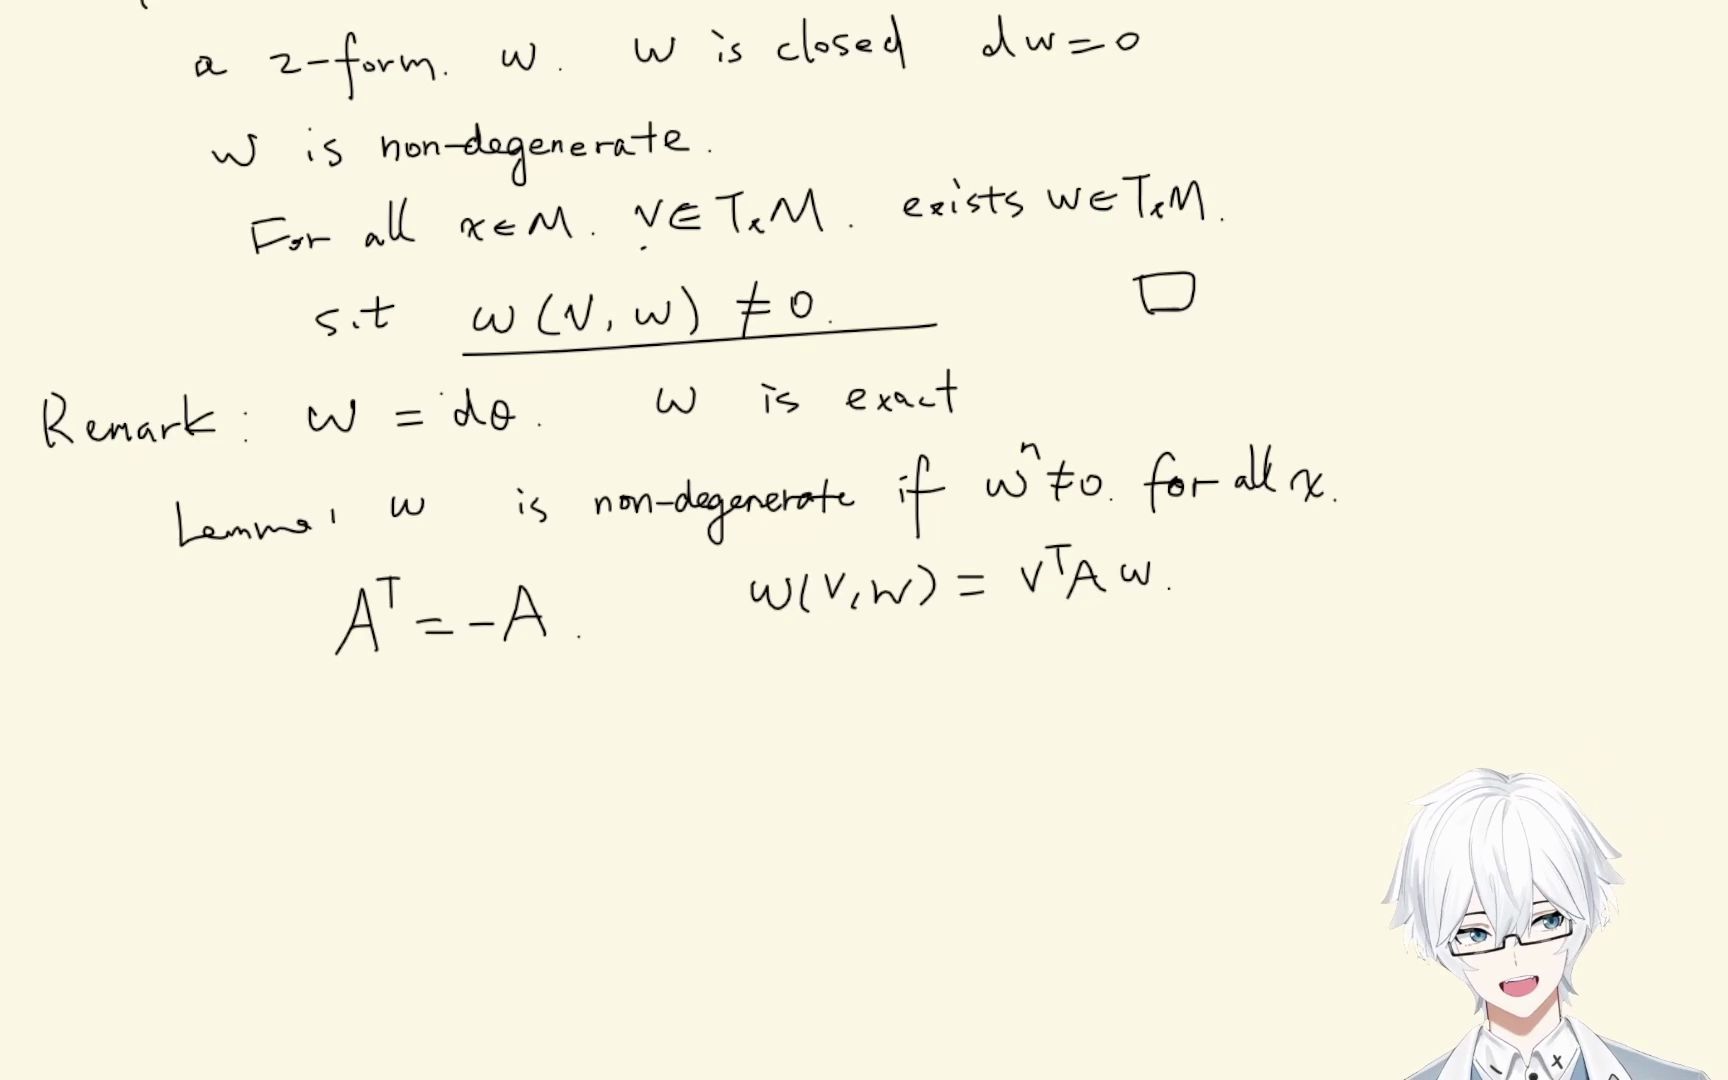 a 2-form. ω. ω is closed dω=0
ω is non-degenerate.
For all x∈M. V∈TₓM. exists w∈TₓM.
s.t ω(V, w) ≠ 0.
Remark: ω = dθ. ω is exact
Lemma: ω is non-degenerate if ωⁿ≠0. for all x.
Aᵀ = -A. ω(V,w) = vᵀA w.